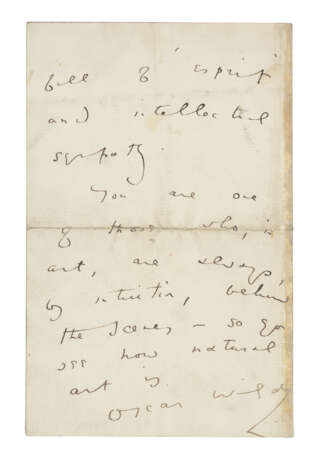 full of 'esprit'
and intellectual
sympathy.
You are one
of those who, in
art, are always,
by intuition, behind
the scenes – so you
see how natural
art is.
Oscar Wilde